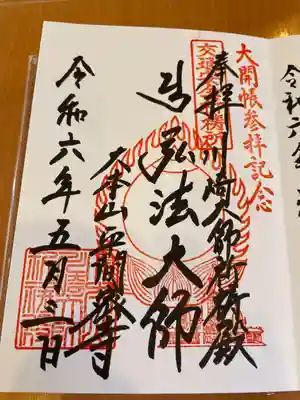 大開帳参拝記念
奉拝 川崎大師祈祷殿
弘法大師
大本山平間寺
令和六年五月三日
令和六